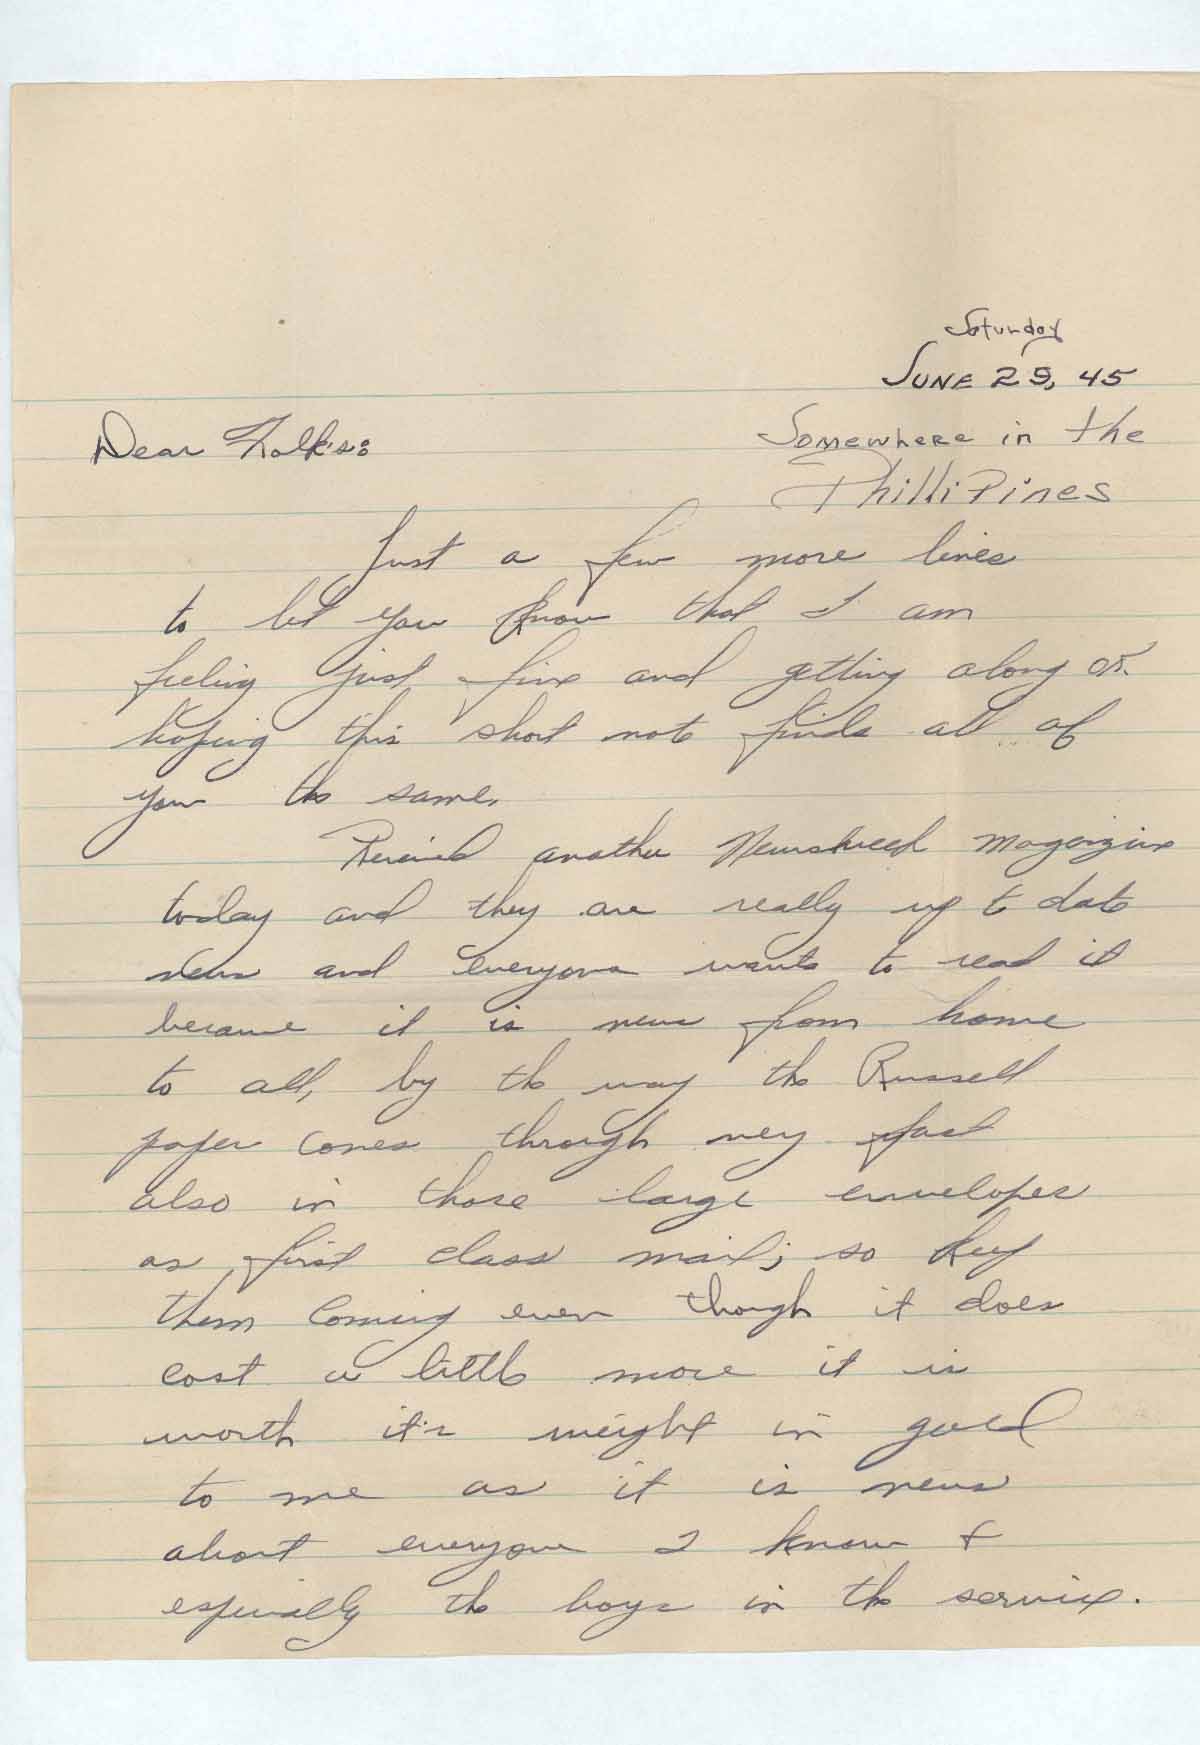 Saturday
JUNE 29, 45
Dear Folk's:
Somewhere in the
PhilliPines
Just a few more lines
to let you know that I am
feeling just fine and getting along OK.
hoping this short note finds all of
you the same.
Received another Newsweek Magazine
today and they are really up to date
news and everyone wants to read it
because it is news from home
to all, by the way the Russell
paper comes through very fast
also in those large envelopes
as first class mail; so keep
them coming even though it does
cost a little more it is
worth it's weight in gold
to me as it is news
about everyone I know &
especially the boys in the service.